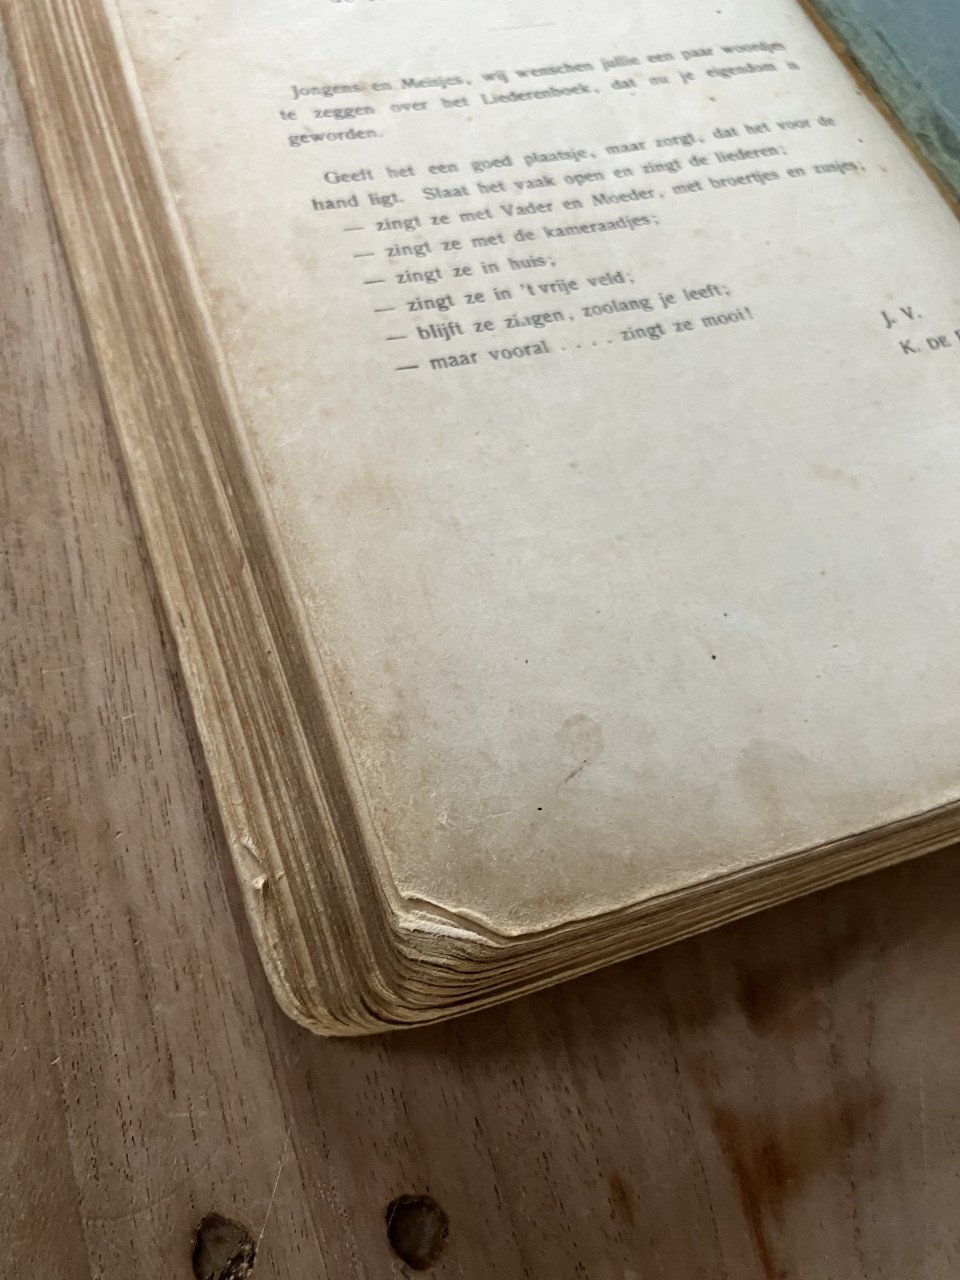 Jongens en Meisjes, wij wenschen jullie een paar woordjes
te zeggen over het Liederenboek, dat nu je eigendom is
geworden.
Geeft het een goed plaatsje, maar zorgt, dat het voor de
hand ligt. Slaat het vaak open en zingt de liederen;
— zingt ze met Vader en Moeder, met broertjes en zusjes;
— zingt ze met de kameraadjes;
— zingt ze in huis;
— zingt ze in 't vrije veld;
— blijft ze zingen, zoolang je leeft;
— maar vooral . . . . zingt ze mooi!
J. V.
K. DE